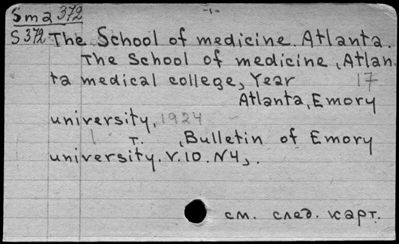 -1-
Sma 372
S 372 The School of medicine. Atlanta.
The School of medicine, Atlan-
ta medical college, Year 17
Atlanta, Emory
university, 1924
т. , Bulletin of Emory
university. V.10. N4,.
см. след. карт.